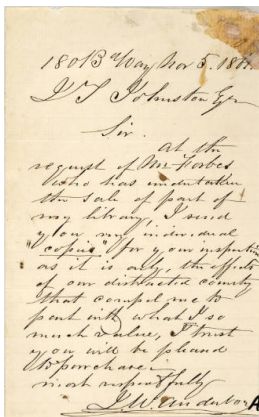 180 B'Way Nov 5. 186
J T Johnston Esqr
Sir.
at the
request of Mr Forbes
who has undertaken
the sale of part of
my library, I send
you my individual
"copies" for your inspection
as it is only, the effects
of our distracted country
that compel me to
part with what I so
much value, I trust
you will be pleased
to purchase.
most respectfully
J. W.
A